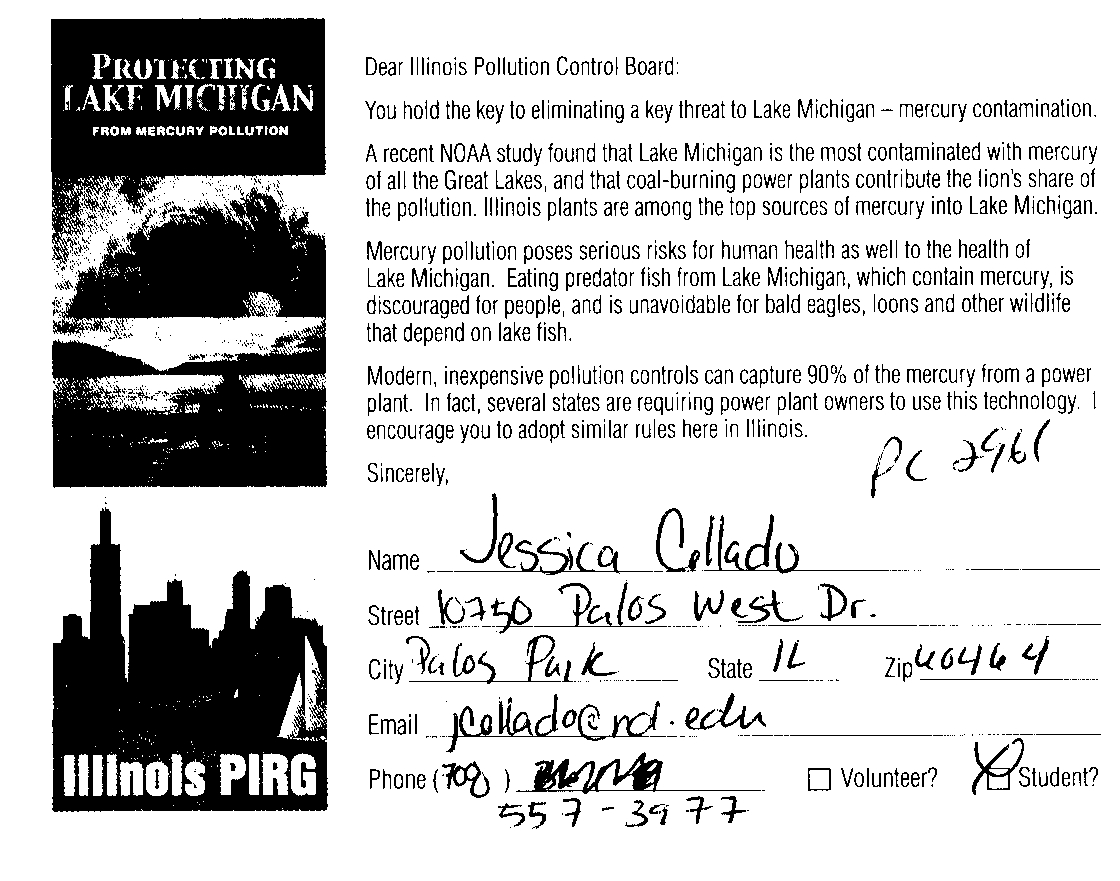 PROTECTING
LAKE MICHIGAN
FROM MERCURY POLLUTION
Illinois PIRG
Dear Illinois Pollution Control Board:
You hold the key to eliminating a key threat to Lake Michigan – mercury contamination.
A recent NOAA study found that Lake Michigan is the most contaminated with mercury
of all the Great Lakes, and that coal-burning power plants contribute the lion's share of
the pollution. Illinois plants are among the top sources of mercury into Lake Michigan.
Mercury pollution poses serious risks for human health as well to the health of
Lake Michigan. Eating predator fish from Lake Michigan, which contain mercury, is
discouraged for people, and is unavoidable for bald eagles, loons and other wildlife
that depend on lake fish.
Modern, inexpensive pollution controls can capture 90% of the mercury from a power
plant. In fact, several states are requiring power plant owners to use this technology. I
encourage you to adopt similar rules here in Illinois.
PC 2961
Sincerely,
Name Jessica Collado
Street 10750 Palos West Dr.
City Palos Park State IL Zip 60464
Email jcollado@rd.edu
Phone (708) Volunteer? Student?
557-3977